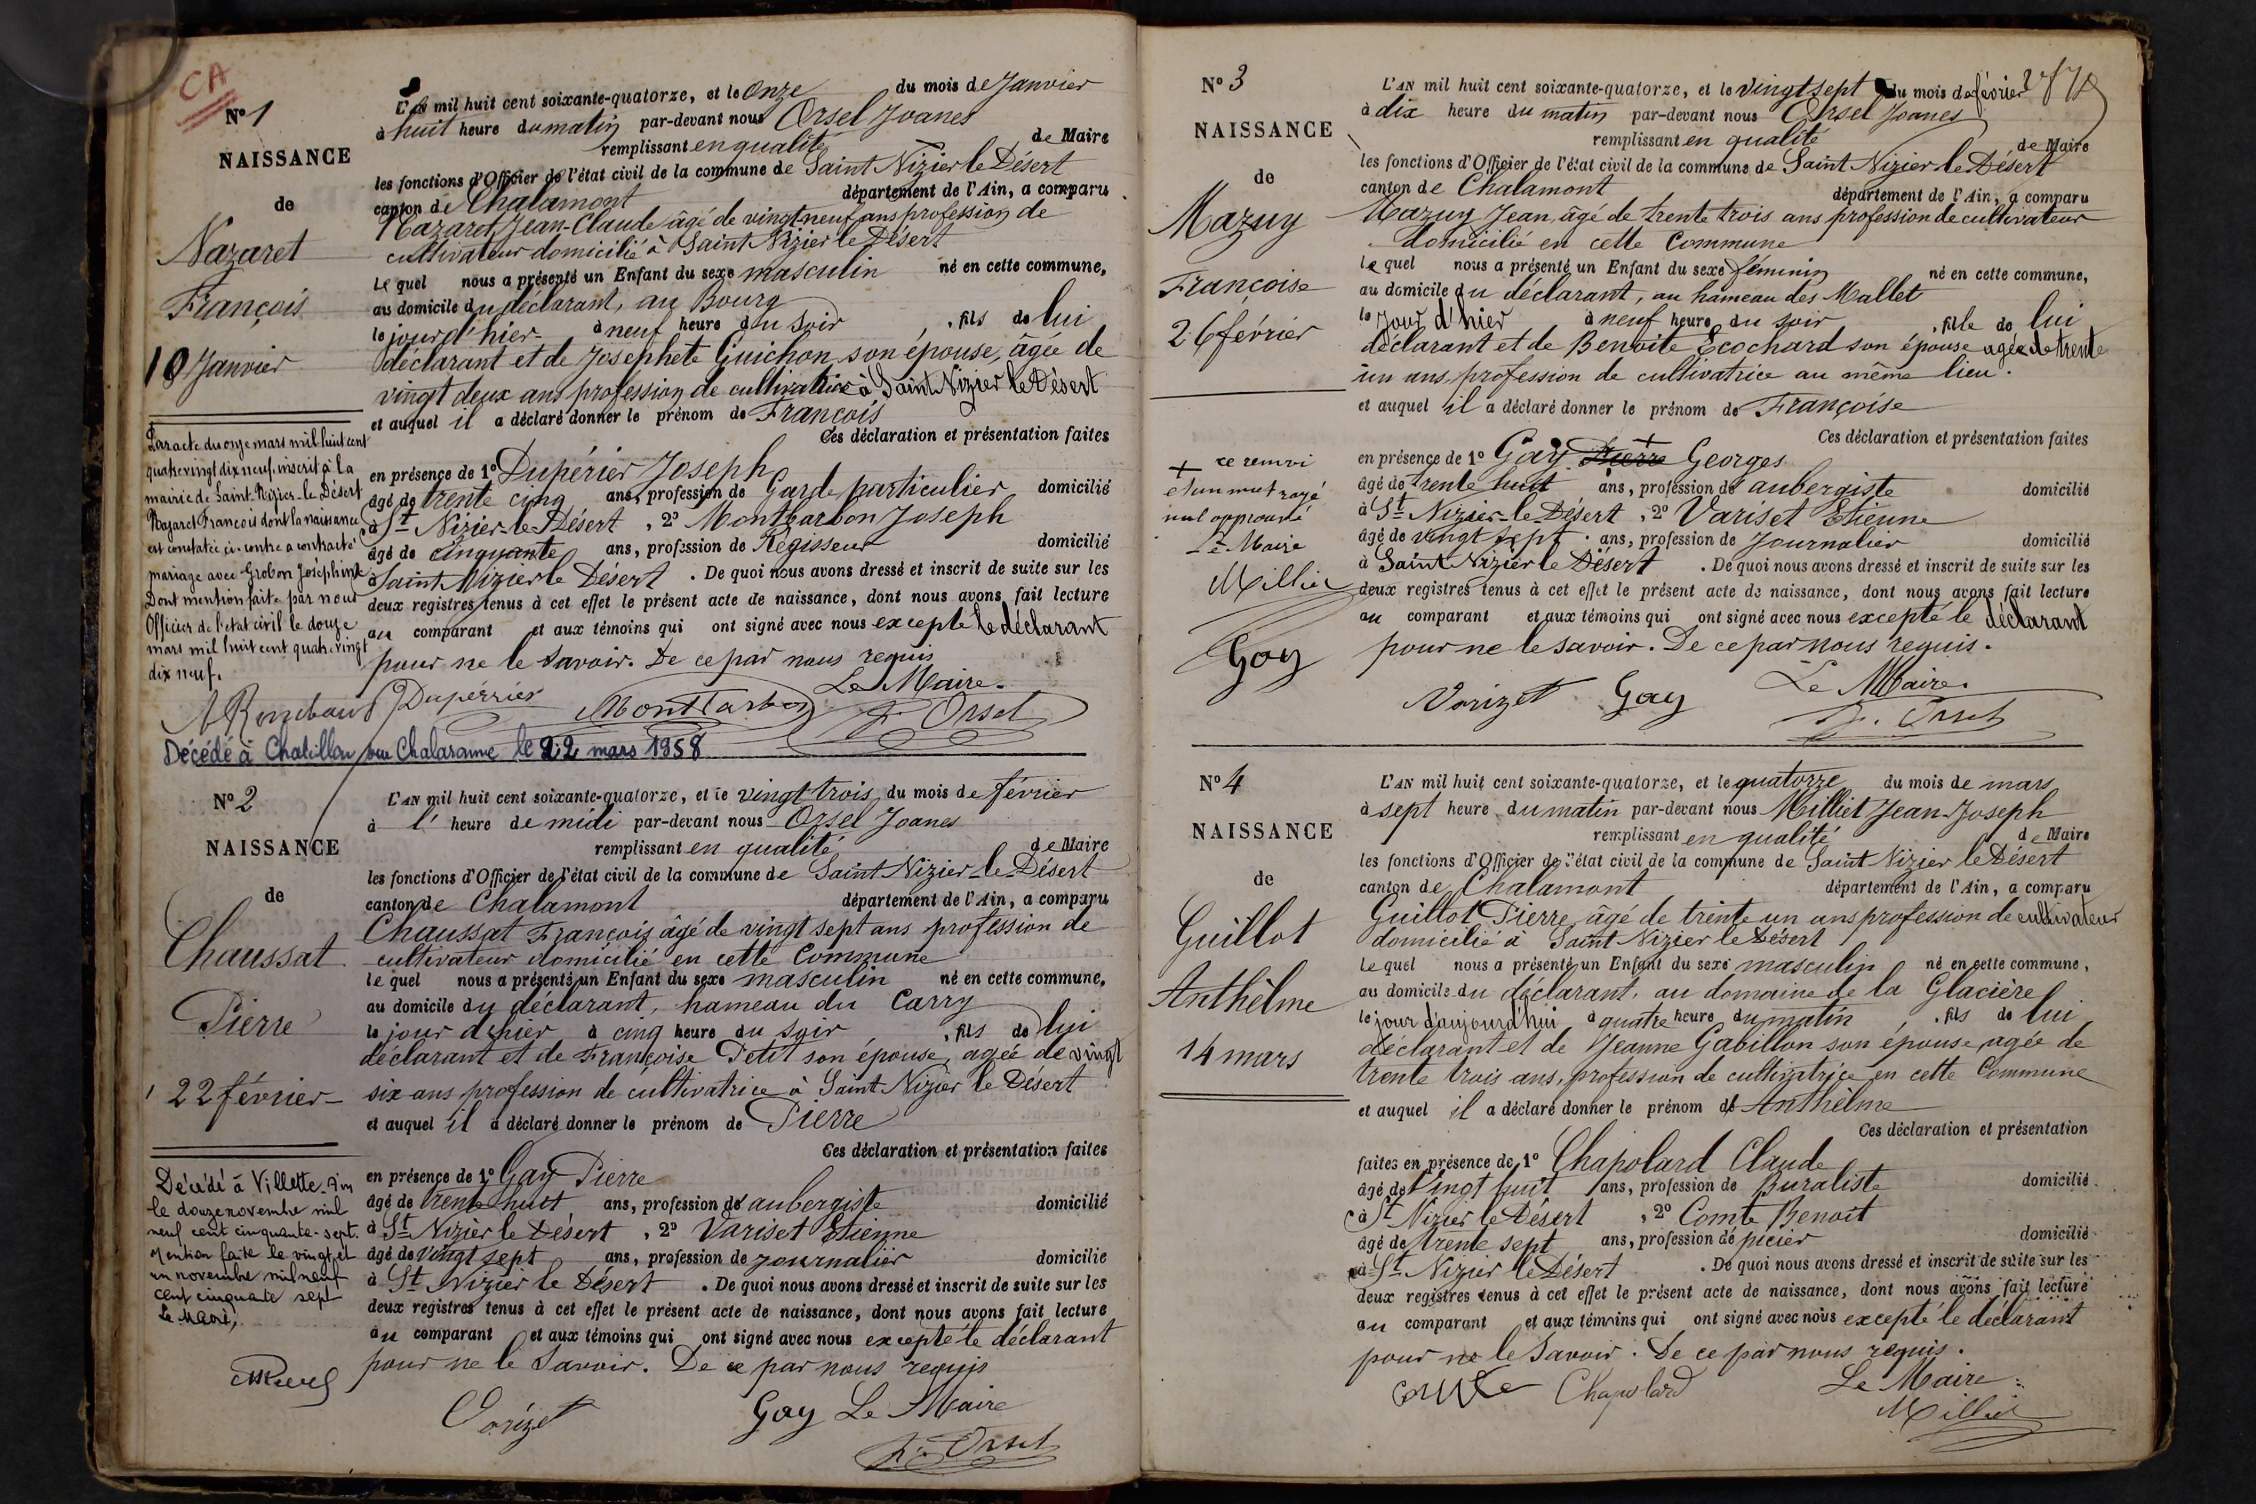 CA
N° 1
NAISSANCE
de
Nazaret
François
10 Janvier
L'AN mil huit cent soixante-quatorze, et le onze du mois de Janvier
à huit heure du matin par-devant nous Orsel Joanes
remplissant en qualité de Maire
les fonctions d'Officier de l'état civil de la commune de Saint Nizier le Désert
canton de Chalamont département de l'Ain, a comparu
Nazaret Jean-Claude âgé de vingt neuf ans profession de
cultivateur domicilié à Saint Nizier le Désert
lequel nous a présenté un Enfant du sexe masculin né en cette commune,
au domicile du déclarant, au Bourg
le jour d'hier à neuf heure du soir, fils de lui
déclarant et de Josephete Guichon son épouse, âgée de
vingt deux ans profession de cultivatrice à Saint Nizier le Désert
et auquel il a déclaré donner le prénom de François
Ces déclaration et présentation faites
en présence de 1° Dupérier Joseph
âgé de trente cinq ans, profession de Garde particulier domicilié
à St Nizier le Désert, 2° Montharbon Joseph
âgé de cinquante ans, profession de Régisseur domicilié
à Saint Nizier le Désert. De quoi nous avons dressé et inscrit de suite sur les
deux registres tenus à cet effet le présent acte de naissance, dont nous avons fait lecture
au comparant et aux témoins qui ont signé avec nous excepté le déclarant
pour ne le savoir. De ce par nous requis
Le Maire.
Dupérrier Montharbon J. Orsel
Par acte du onze mars mil huit cent
quatre vingt dix neuf, inscrit à la
mairie de Saint-Nizier-le Désert
Nazaret François dont la naissance
est constatée ci-contre a contracté
mariage avec Grobon Joséphine
Dont mention faite par nous
Officier de l'état civil le douze
mars mil huit cent quatre vingt
dix neuf.
Décédé à Chatillon sur Chalaronne le 22 mars 1958
N° 2
NAISSANCE
de
Chaussat
Pierre
22 février
L'AN mil huit cent soixante-quatorze, et le vingt trois du mois de février
à l' heure de midi par-devant nous Orsel Joanes
remplissant en qualité de Maire
les fonctions d'Officier de l'état civil de la commune de Saint Nizier le Désert
canton de Chalamont département de l'Ain, a comparu
Chaussat François âgé de vingt sept ans profession de
cultivateur domicilié en cette Commune
lequel nous a présenté un Enfant du sexe masculin né en cette commune,
au domicile du déclarant, hameau du Carry
le jour d'hier à cinq heure du soir, fils de lui
déclarant et de Françoise Petit son épouse, agée de vingt
six ans profession de cultivatrice à Saint Nizier le Désert
et auquel il a déclaré donner le prénom de Pierre
Ces déclaration et présentation faites
en présence de 1° Gay Pierre
âgé de trente huit ans, profession de aubergiste domicilié
à St Nizier le Désert, 2° Variset Etienne
âgé de vingt sept ans, profession de journalier domicilié
à St Nizier le Désert. De quoi nous avons dressé et inscrit de suite sur les
deux registres tenus à cet effet le présent acte de naissance, dont nous avons fait lecture
au comparant et aux témoins qui ont signé avec nous excepté le déclarant
pour ne le savoir. De ce par nous requis
Varizet Gay Le Maire
J. Orsel
Décédé à Villette-Ain
le douze novembre mil
neuf cent cinquante-sept.
Mention faite le vingt et
un novembre mil neuf
cent cinquante sept
Le Maire,
N° 3
NAISSANCE
de
Mazuy
Françoise
26 février
L'AN mil huit cent soixante-quatorze, et le vingt sept du mois de février
à dix heure du matin par-devant nous Orsel Joanes
remplissant en qualité de Maire
les fonctions d'Officier de l'état civil de la commune de Saint Nizier le Désert
canton de Chalamont département de l'Ain, a comparu
Mazuy Jean, âgé de trente trois ans profession de cultivateur
domicilié en cette Commune
lequel nous a présenté un Enfant du sexe féminin né en cette commune,
au domicile du déclarant, au hameau des Mallet
le jour d'hier à neuf heure du soir, fille de lui
déclarant et de Benoite Ecochard son épouse agée de trente
un ans, profession de cultivatrice au même lieu.
et auquel il a déclaré donner le prénom de Françoise
Ces déclaration et présentation faites
en présence de 1° Gay Pierre + Georges
âgé de trente huit ans, profession de aubergiste domicilié
à St Nizier-le-Désert, 2° Variset Etienne
âgé de vingt sept ans, profession de Journalier domicilié
à Saint Nizier le Désert. De quoi nous avons dressé et inscrit de suite sur les
deux registres tenus à cet effet le présent acte de naissance, dont nous avons fait lecture
au comparant et aux témoins qui ont signé avec nous excepté le déclarant
pour ne le savoir. De ce par nous requis.
Varizet Gay Le Maire.
J. Orsel
+ ce renvoi
et un mot rayé
nul approuvé
Le Maire
Milliet
Gay
N° 4
NAISSANCE
de
Guillot
Anthelme
14 mars
L'AN mil huit cent soixante-quatorze, et le quatorze du mois de mars
à sept heure du matin par-devant nous Milliet Jean-Joseph
remplissant en qualité de Maire
les fonctions d'Officier de l'état civil de la commune de Saint Nizier le Désert
canton de Chalamont département de l'Ain, a comparu
Guillot Pierre, âgé de trente un ans profession de cultivateur
domicilié à Saint Nizier le Désert
lequel nous a présenté un Enfant du sexe masculin né en cette commune,
au domicile du déclarant, au domaine de la Glacière
le jour d'aujourd'hui à quatre heure du matin, fils de lui
déclarant et de Jeanne Gabillon son épouse agée de
trente trois ans, profession de cultivatrice en cette Commune
et auquel il a déclaré donner le prénom de Anthelme
Ces déclaration et présentation
faites en présence de 1° Chapolard Claude
âgé de vingt huit ans, profession de Buraliste domicilié
à St Nizier le Désert, 2° Comte Benoit
âgé de trente sept ans, profession dépicier domicilié
à St Nizier le Désert. De quoi nous avons dressé et inscrit de suite sur les
deux registres tenus à cet effet le présent acte de naissance, dont nous avons fait lecture
au comparant et aux témoins qui ont signé avec nous excepté le déclarant
pour ne le savoir. De ce par nous requis.
Comte Chapolard Le Maire
Milliet